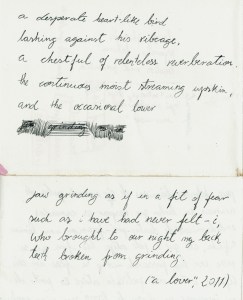 a desperate heart-like bird
lashing against his ribcage,
a chestful of relentless reverberation,
the continuous moist streaming upskin,
and the occasional lower
jaw grinding as if in a fit of fear
such as i have had never felt – i,
who brought to our night my back
teeth broken from grinding.
(a lover, 2011)